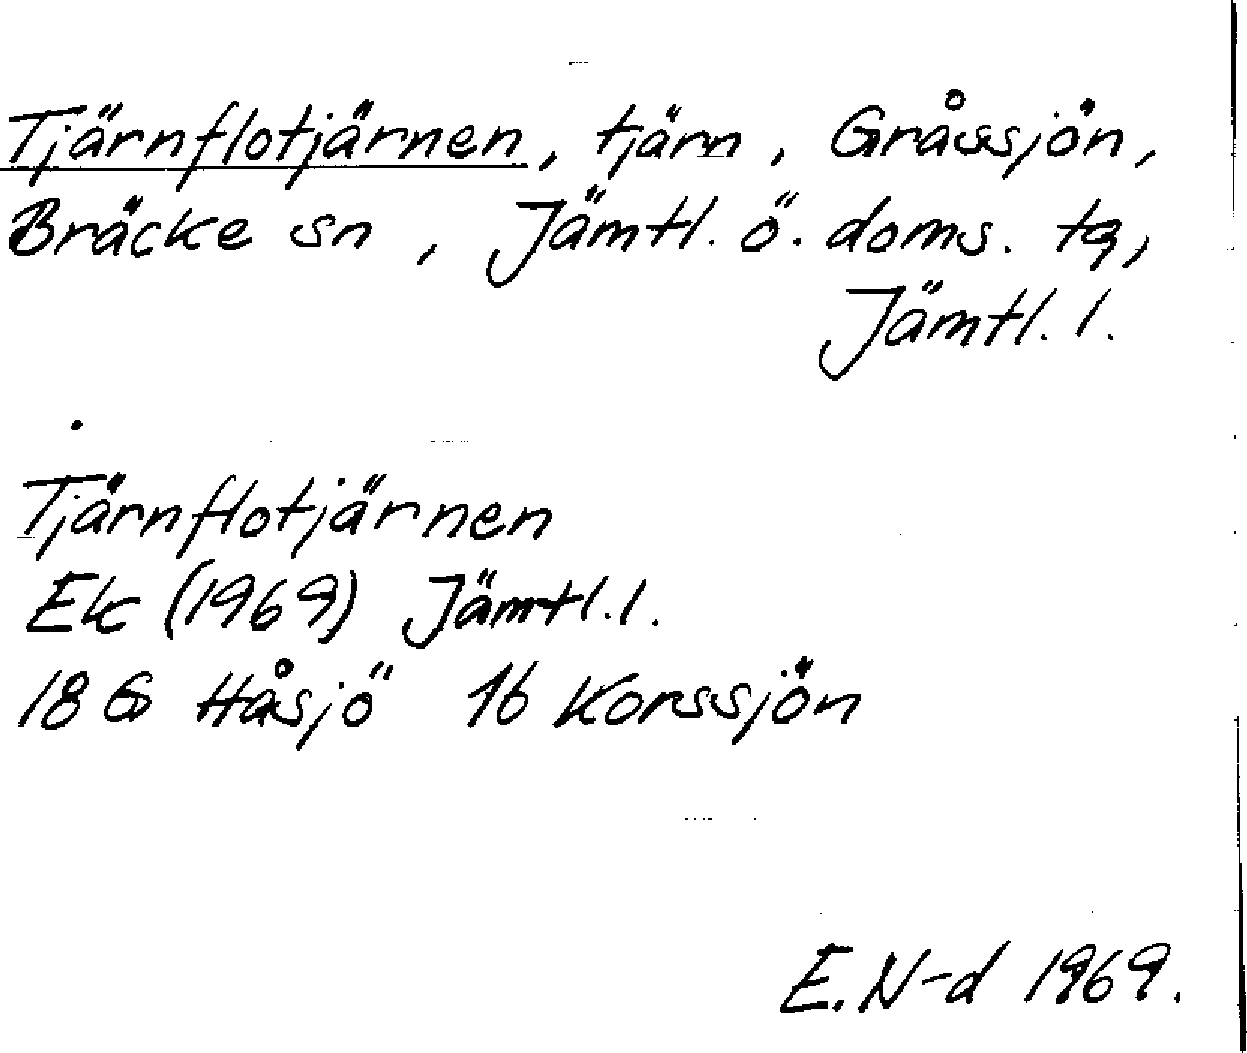 Tjärnflotjärnen, tjärn, Gråssjön,
Bräcke sn, Jämtl. ö. doms. tg,
Jämtl. l.
Tjärnflotjärnen
Ek (1969) Jämtl. l.
18 G Håsjö 1b Korssjön
E. N-d 1969.